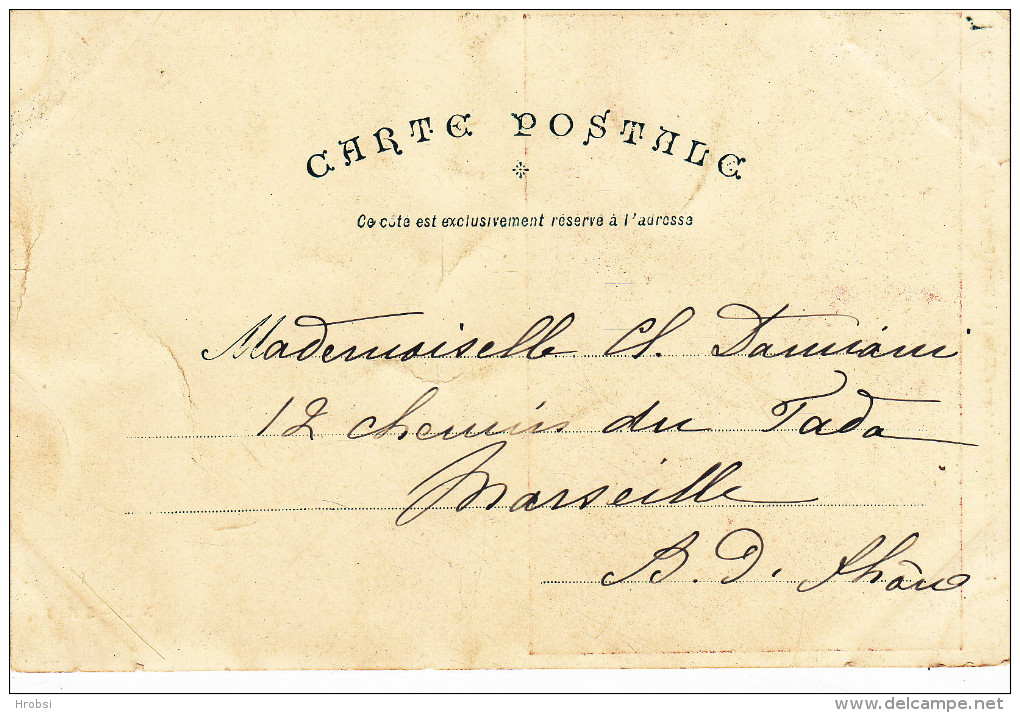 CARTE POSTALE
Ce côté est exclusivement réservé à l'adresse
Mademoiselle Cl. Damiani
12 chemin du Tada
Marseille
B. D. Rhône
Hrobsi
delcampe.net